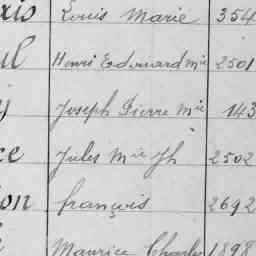 Louis Marie 354
Henri Edouard Mie 2501
Joseph Pierre Mie 143
Jules Mie Jh 2502
on françois 2692
Maurice Charles 1898